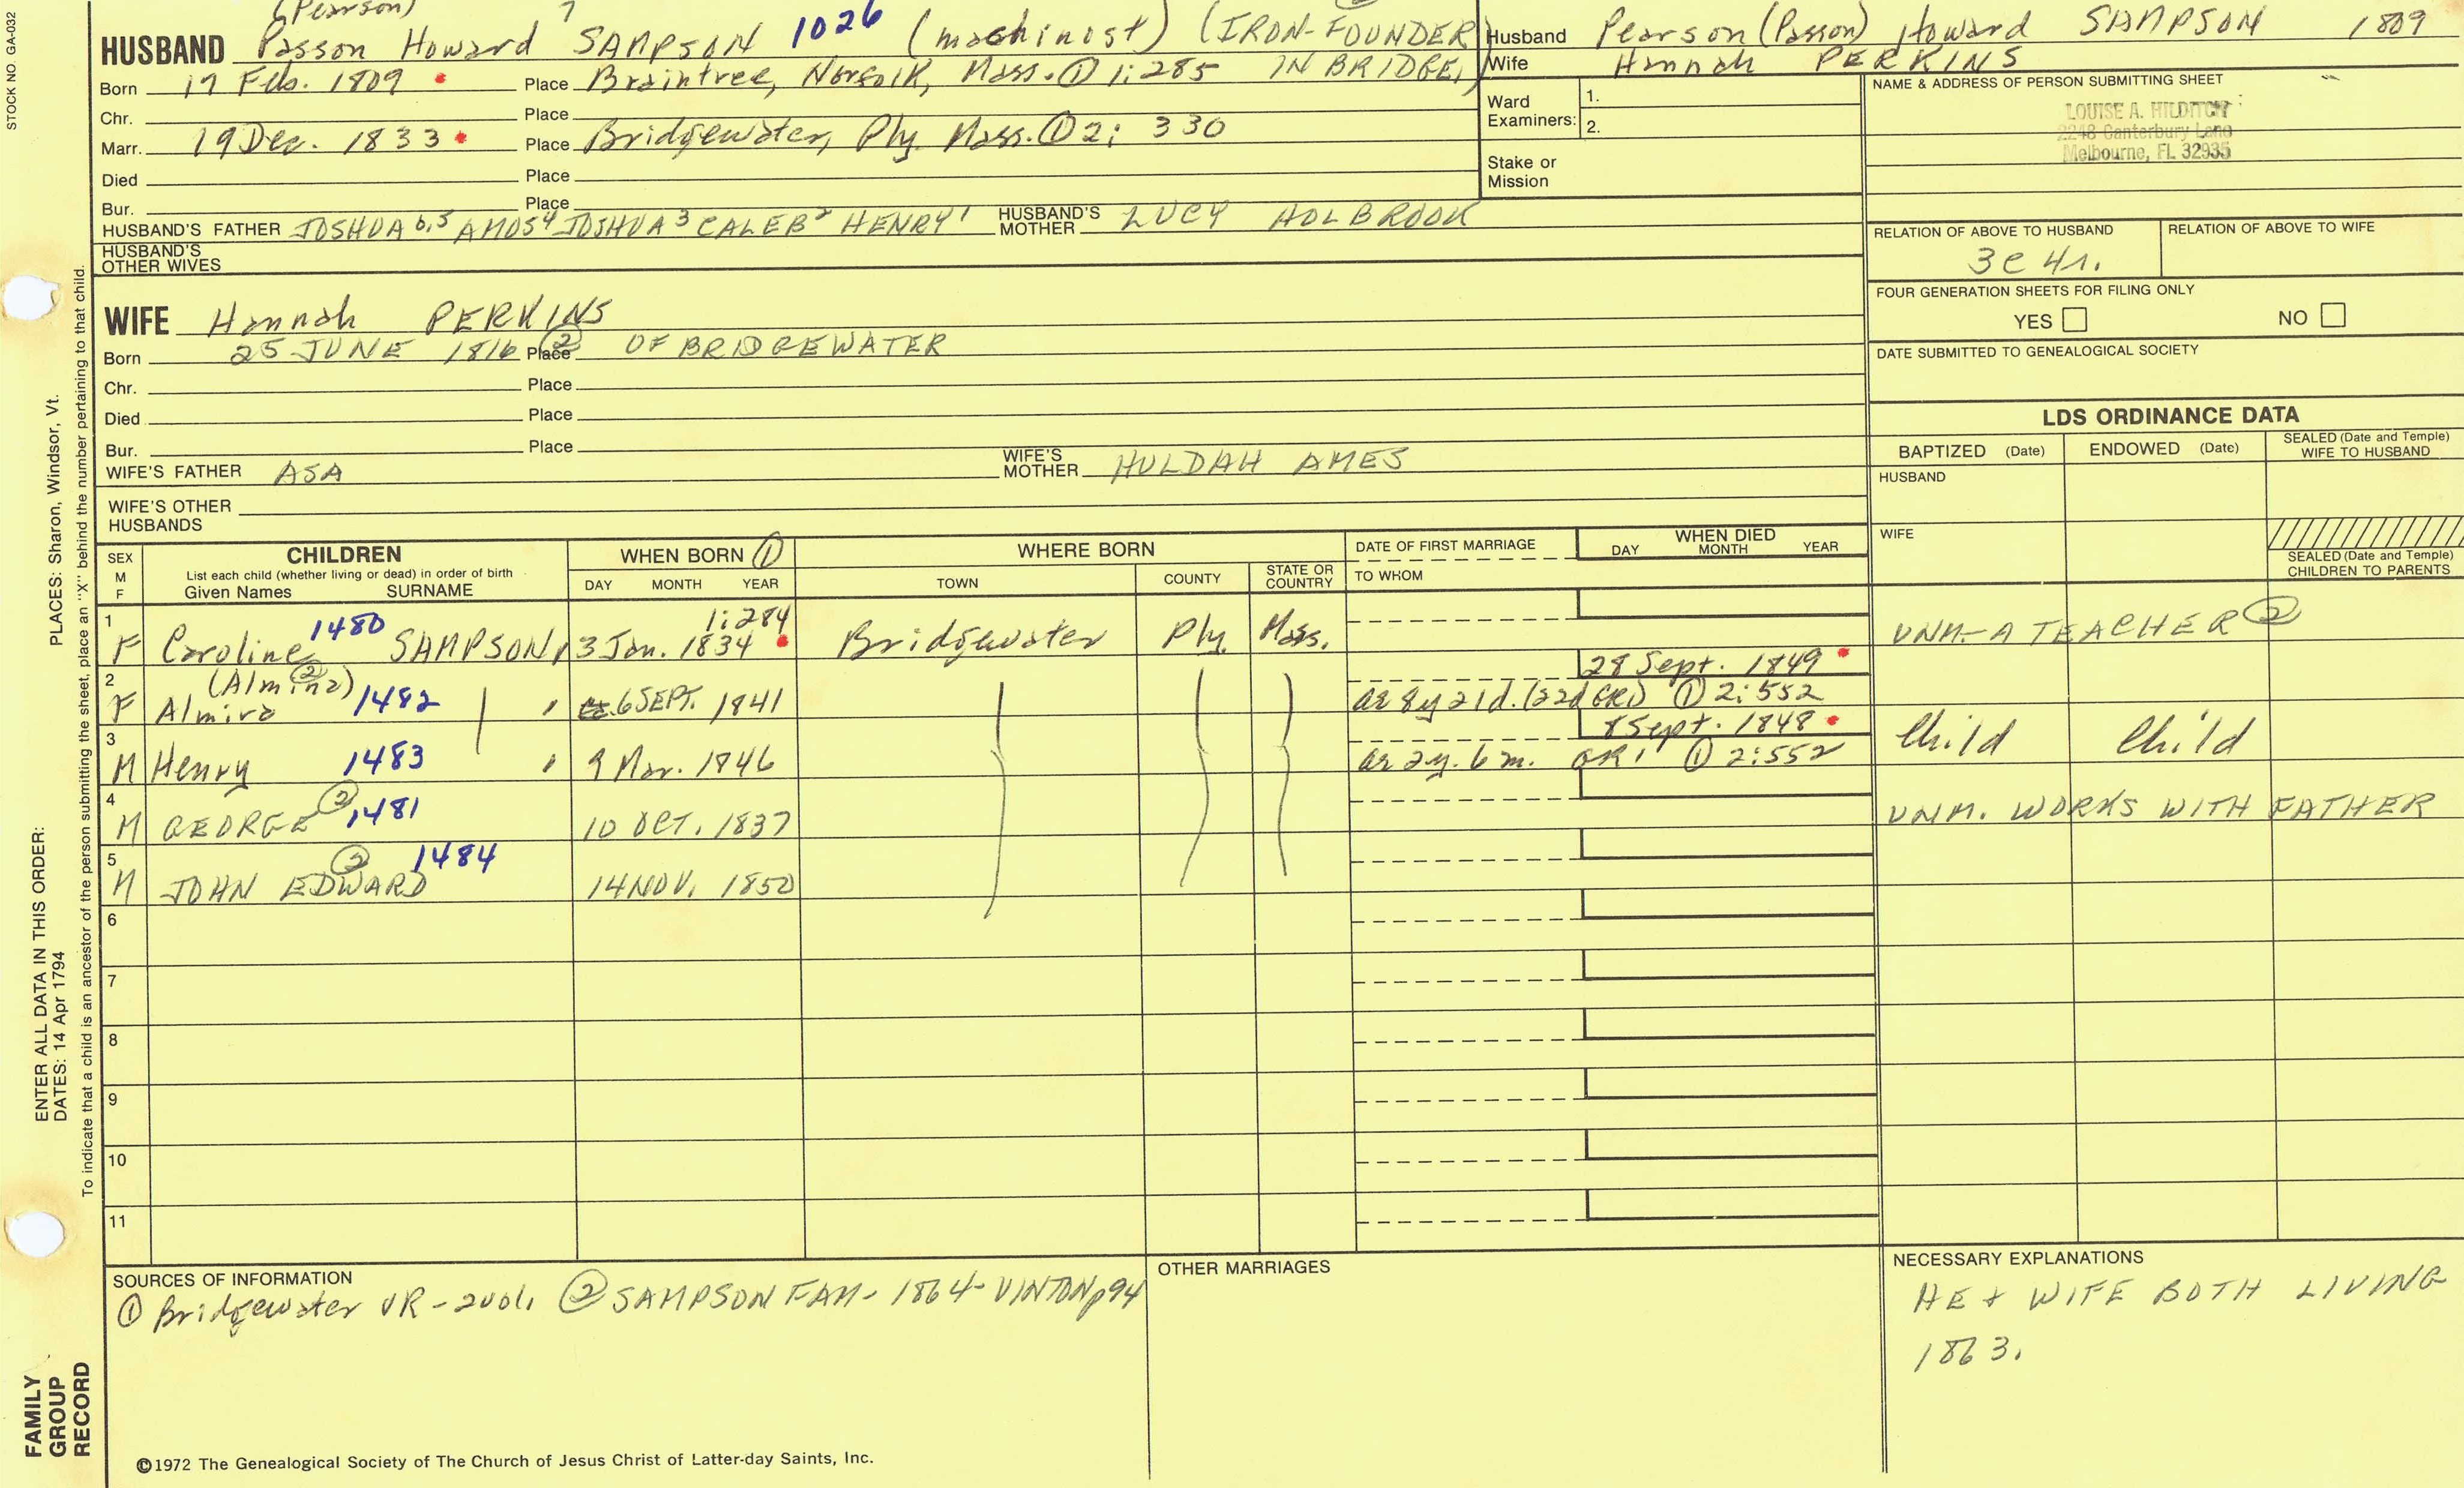 STOCK NO. GA-032
(Pearson) 7
HUSBAND Passon Howard SAMPSON 1026 (machinost) (IRON-FOUNDER
Born 17 Feb. 1809 Place Braintree, Norfolk, Mass. ① 1:285 IN BRIDGE.)
Chr. Place
Marr. 19 Dec. 1833 Place Bridgewater, Ply. Mass. ① 2: 330
Died Place
Bur. Place
HUSBAND'S FATHER JOSHUA 6,5 AMOS 4 JOSHUA 3 CALEB 2 HENRY 1 HUSBAND'S MOTHER LUCY HOLBROOK
HUSBAND'S OTHER WIVES
Husband Pearson (Passon) Howard SAMPSON 1809
Wife Hannah PERKINS
Ward Examiners: 1.
2.
Stake or Mission
NAME & ADDRESS OF PERSON SUBMITTING SHEET
LOUISE A. HILDITCH
2248 Canterbury Lane
Melbourne, FL 32935
RELATION OF ABOVE TO HUSBAND RELATION OF ABOVE TO WIFE
3c 4r.
FOUR GENERATION SHEETS FOR FILING ONLY
YES NO
DATE SUBMITTED TO GENEALOGICAL SOCIETY
WIFE Hannah PERKINS
Born 25 JUNE 1816 ② Place OF BRIDGEWATER
Chr. Place
Died Place
Bur. Place
WIFE'S FATHER ASA WIFE'S MOTHER HULDAH AMES
WIFE'S OTHER HUSBANDS
LDS ORDINANCE DATA
BAPTIZED (Date) ENDOWED (Date) SEALED (Date and Temple) WIFE TO HUSBAND
HUSBAND
WIFE
SEALED (Date and Temple) CHILDREN TO PARENTS
SEX M F
CHILDREN
List each child (whether living or dead) in order of birth
Given Names SURNAME
WHEN BORN ①
DAY MONTH YEAR
WHERE BORN
TOWN COUNTY STATE OR COUNTRY
DATE OF FIRST MARRIAGE
TO WHOM
WHEN DIED
DAY MONTH YEAR
1 F Caroline 1480 SAMPSON, 3 Jan. 1834 1:284 Bridgewater Ply. Mass. UNM.- A TEACHER ②
2 F Almira (Almina) ② 1482 " 6 SEPT. 1841 28 Sept. 1849
ae 8y 21d. (22d GR1) ① 2:552
3 M Henry 1483 " 9 Mar. 1846 8 Sept. 1848 Child Child
ae 2y. 6m. GR1 ① 2:552
4 M GEORGE ② 1481 10 OCT. 1837 UNM. WORKS WITH FATHER
5 M JOHN EDWARD ② 1484 14 NOV. 1850
6
7
8
9
10
11
SOURCES OF INFORMATION
① Bridgewater VR - 2vol. ② SAMPSON FAM- 1864- VINTON p94
OTHER MARRIAGES
NECESSARY EXPLANATIONS
HE + WIFE BOTH LIVING
1863.
©1972 The Genealogical Society of The Church of Jesus Christ of Latter-day Saints, Inc.
FAMILY GROUP RECORD
ENTER ALL DATA IN THIS ORDER:
DATES: 14 Apr 1794
PLACES: Sharon, Windsor, Vt.
To indicate that a child is an ancestor of the person submitting the sheet, place an "X" behind the number pertaining to that child.